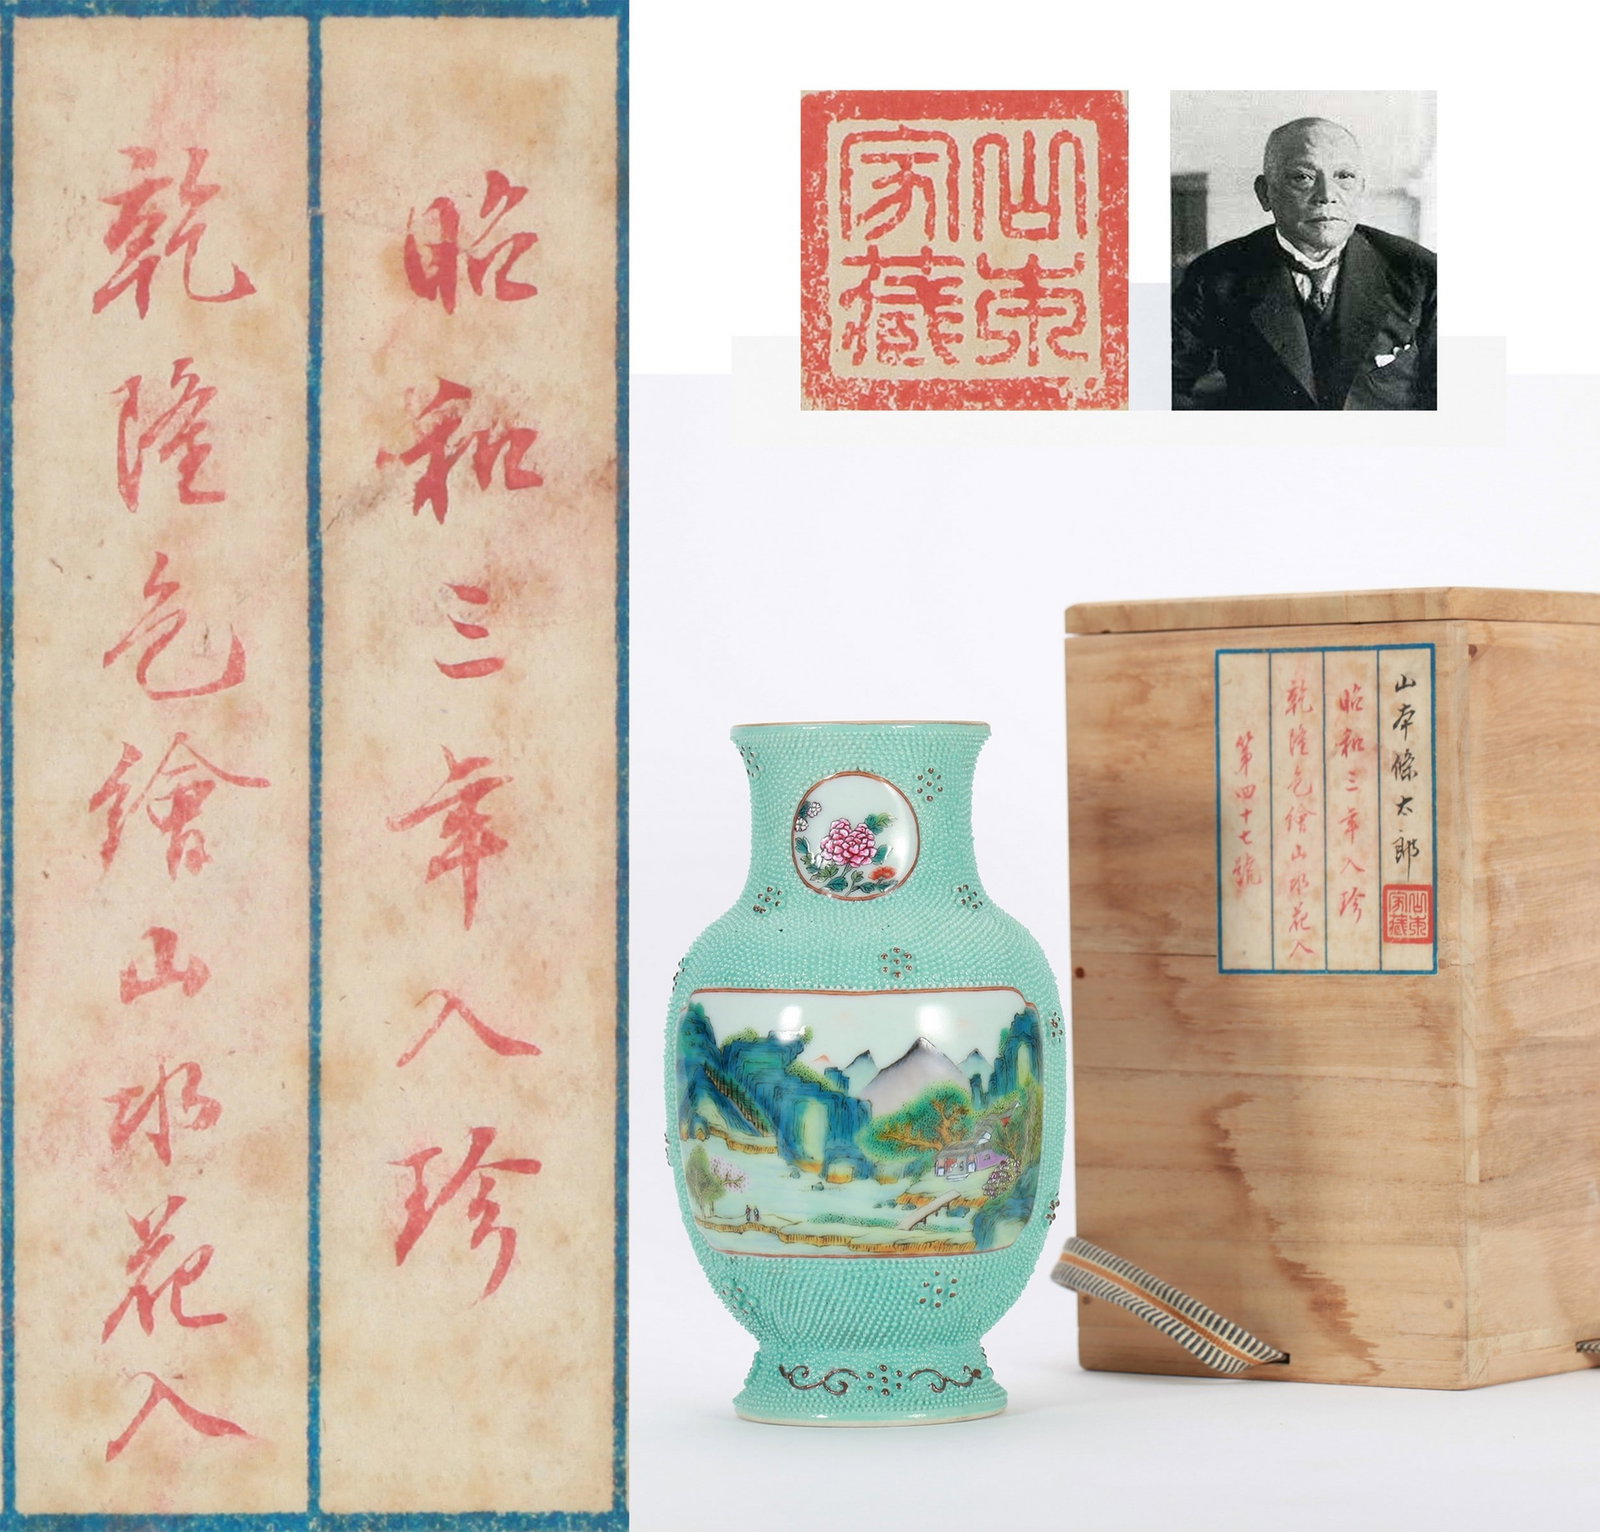 昭和三年入珍
乾隆色繪山水花入
山本
家藏
山本條太郎
山本
家藏
昭和三年入珍
乾隆色繪山水花入
第四十七號